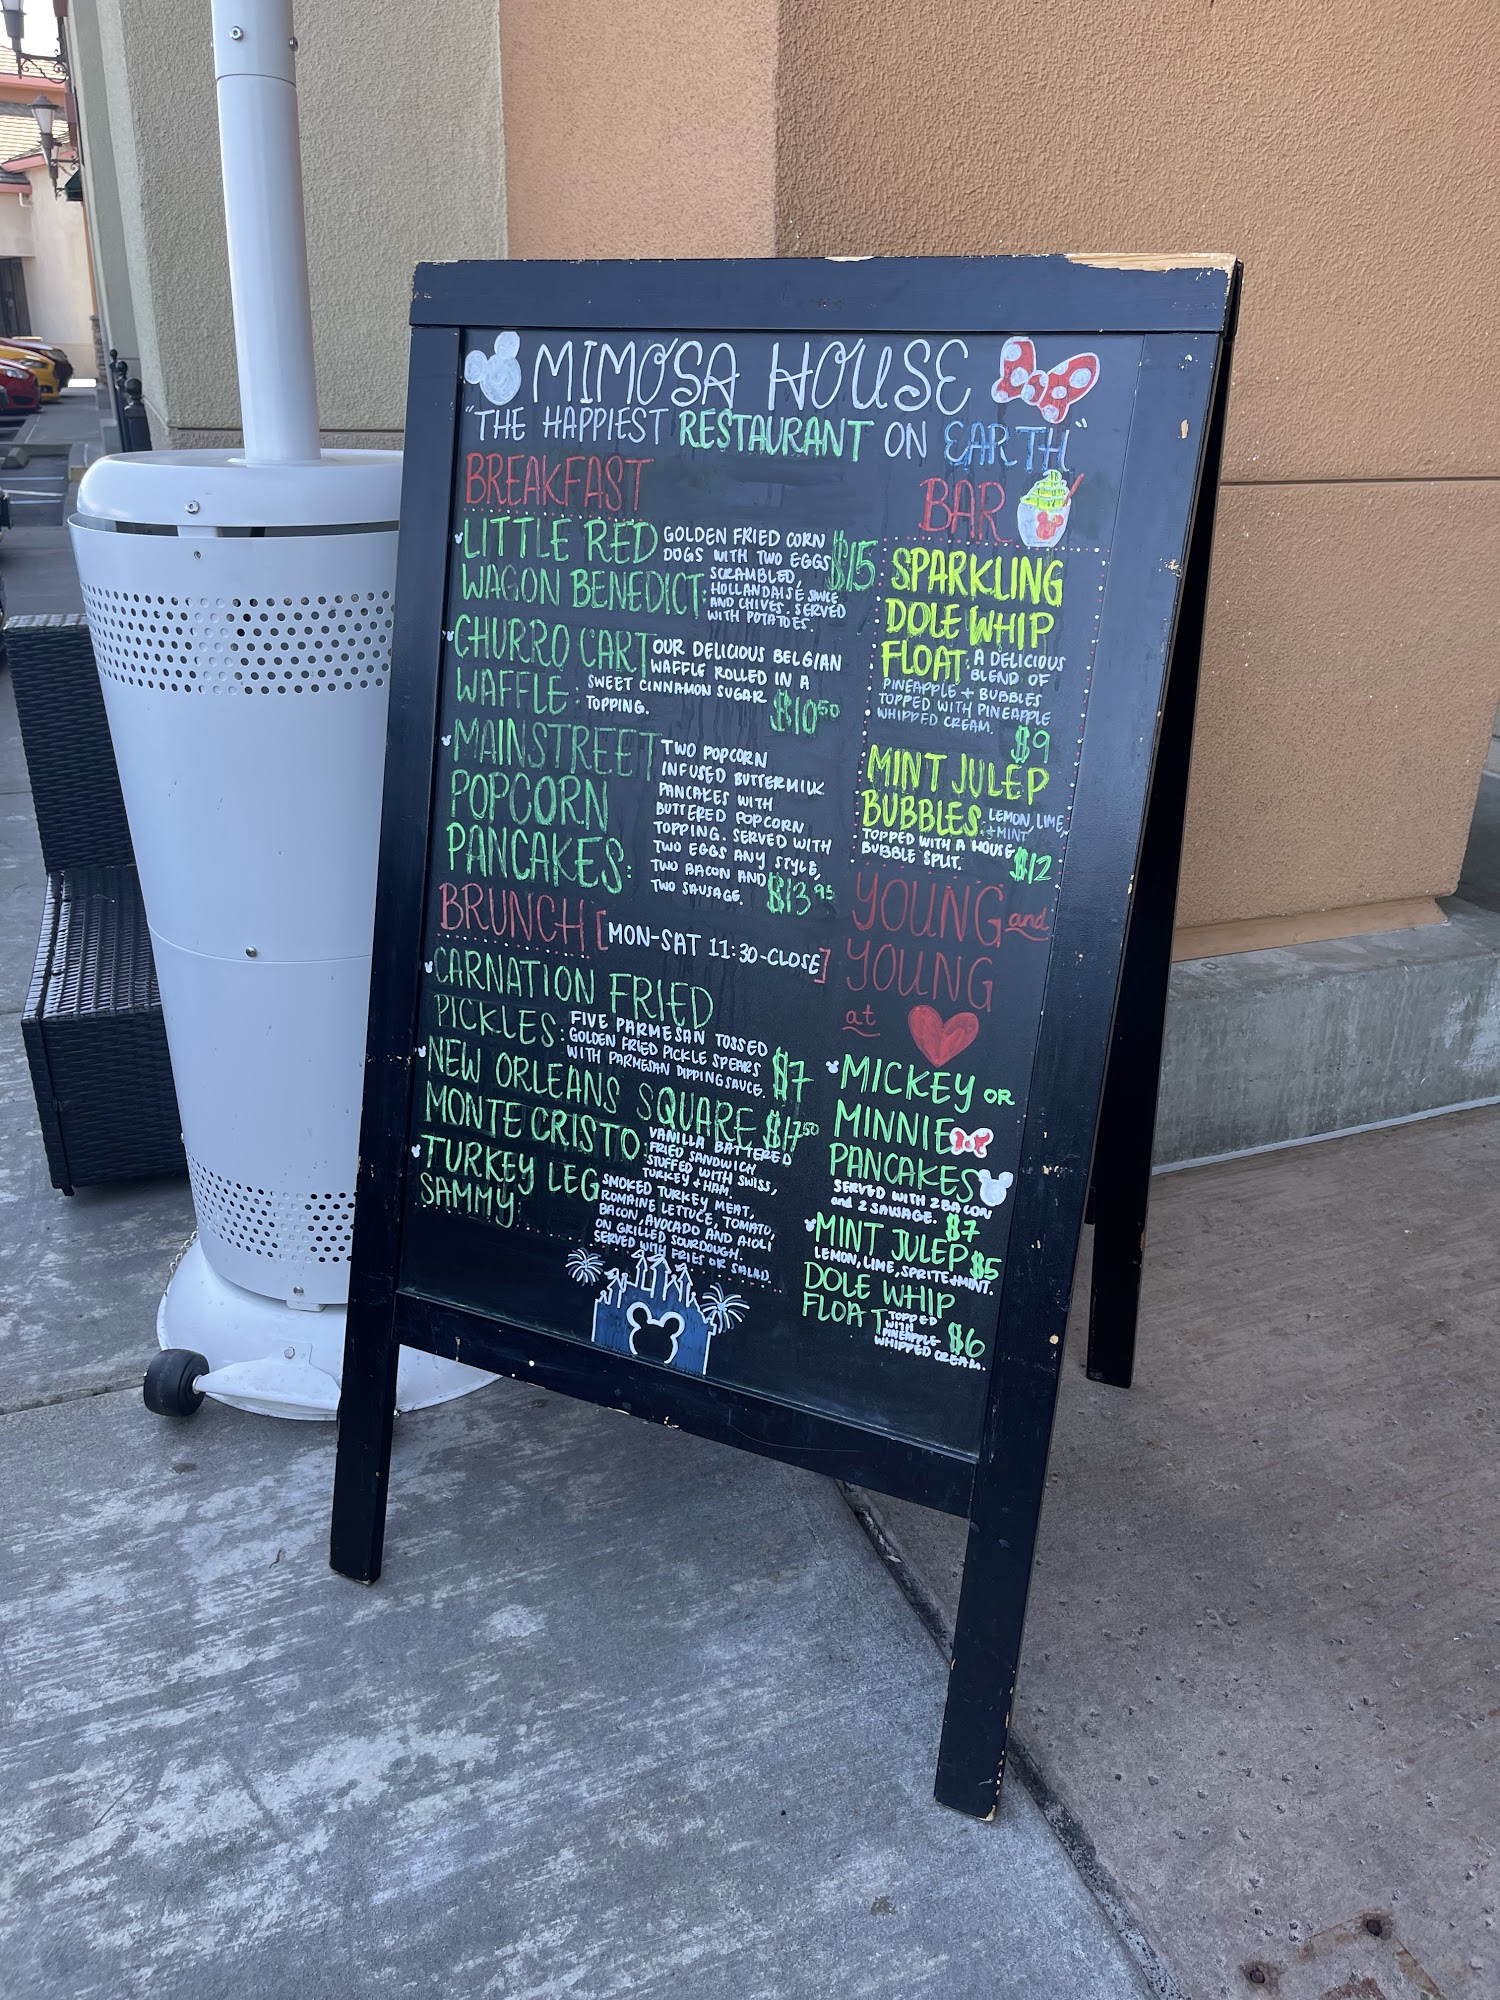 MIMOSA HOUSE
"THE HAPPIEST RESTAURANT ON EARTH"
BREAKFAST
LITTLE RED
WAGON BENEDICT:
GOLDEN FRIED CORN
DOGS WITH TWO EGGS
SCRAMBLED,
HOLLANDAISE SAUCE
AND CHIVES. SERVED
WITH POTATOES.
$15
CHURRO CART
WAFFLE:
OUR DELICIOUS BELGIAN
WAFFLE ROLLED IN A
SWEET CINNAMON SUGAR
TOPPING.
$10.50
MAINSTREET
POPCORN
PANCAKES:
TWO POPCORN
INFUSED BUTTERMILK
PANCAKES WITH
BUTTERED POPCORN
TOPPING. SERVED WITH
TWO EGGS ANY STYLE,
TWO BACON AND
TWO SAUSAGE.
$13.95
BRUNCH [MON-SAT 11:30-CLOSE]
CARNATION FRIED
PICKLES:
FIVE PARMESAN TOSSED
GOLDEN FRIED PICKLE SPEARS
WITH PARMESAN DIPPING SAUCE.
$7
NEW ORLEANS SQUARE
MONTE CRISTO:
$17.50
VANILLA BATTERED
FRIED SANDWICH
STUFFED WITH SWISS,
TURKEY + HAM.
TURKEY LEG
SAMMY
SMOKED TURKEY MEAT,
ROMAINE LETTUCE, TOMATO,
BACON, AVOCADO AND AIOLI
ON GRILLED SOURDOUGH.
SERVED WITH FRIES OR SALAD.
BAR
SPARKLING
DOLE WHIP
FLOAT:
A DELICIOUS
BLEND OF
PINEAPPLE + BUBBLES
TOPPED WITH PINEAPPLE
WHIPPED CREAM.
$9
MINT JULEP
BUBBLES:
LEMON, LIME,
+ MINT
TOPPED WITH A HOUSE
BUBBLE SPLIT.
$12
YOUNG and
YOUNG
at
MICKEY OR
MINNIE
PANCAKES
SERVED WITH 2 BACON
and 2 SAUSAGE. $7
MINT JULEP $5
LEMON, LIME, SPRITE + MINT.
DOLE WHIP
FLOAT
TOPPED
WITH
PINEAPPLE
WHIPPED CREAM.
$6